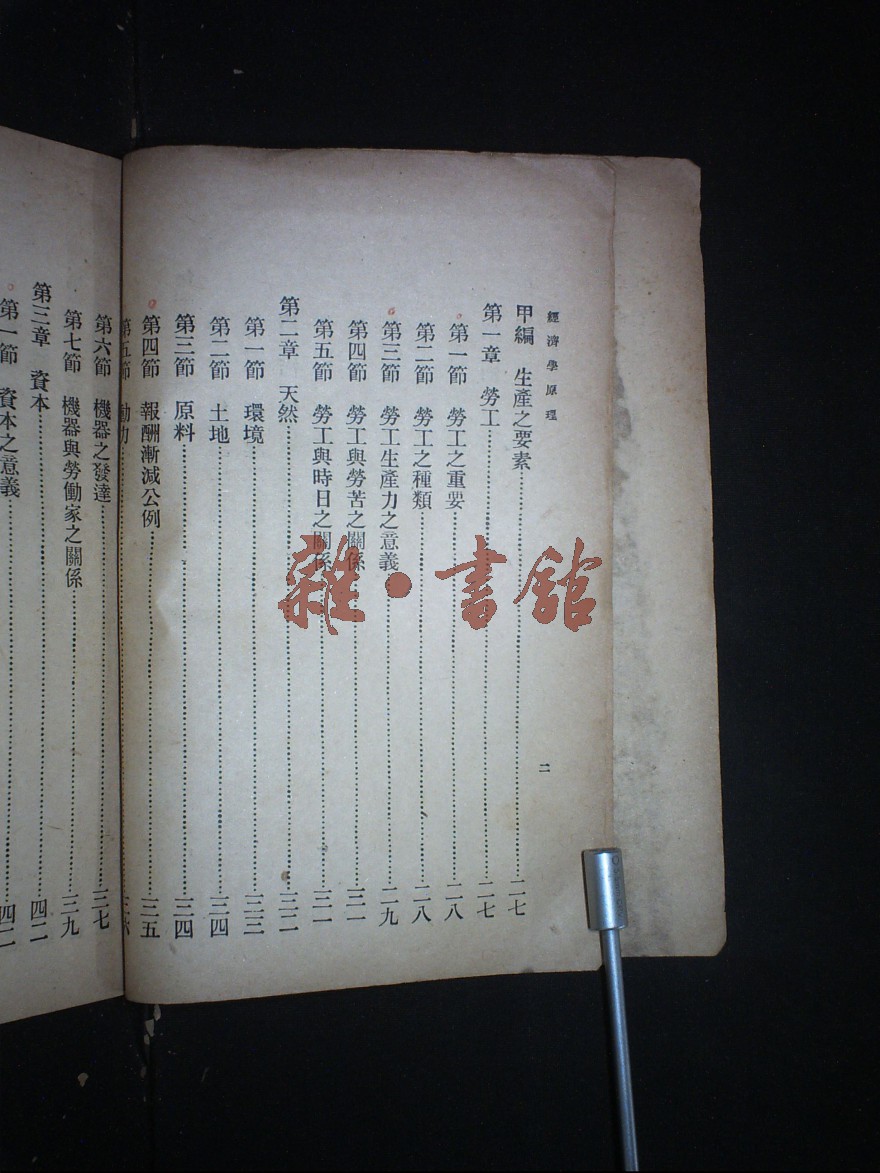 經濟學原理
二
甲編 生產之要素 二七
第一章 勞工 二七
第一節 勞工之重要 二八
第二節 勞工之種類 二八
第三節 勞工生產力之意義 二九
第四節 勞工與勞苦之關係 三一
第五節 勞工與時日之關係 三一
第二章 天然 三二
第一節 環境 三三
第二節 土地 三四
第三節 原料 三四
第四節 報酬漸減公例 三五
第五節 動力 三六
第六節 機器之發達 三七
第七節 機器與勞働家之關係 三九
第三章 資本 四二
第一節 資本之意義 四二
雜·書館